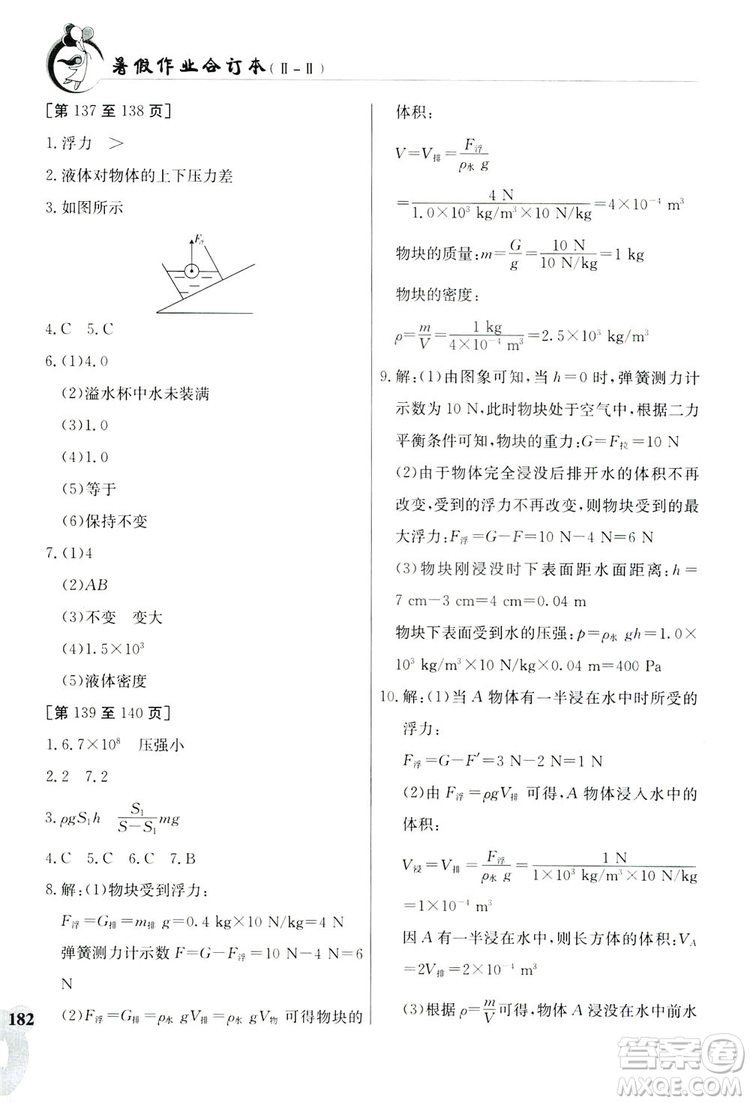 暑假作业合订本(Ⅱ-Ⅱ)
[第137至138页]
1.浮力 >
2.液体对物体的上下压力差
3.如图所示
F浮
4.C 5.C
6.(1)4.0
(2)溢水杯中水未装满
(3)1.0
(4)1.0
(5)等于
(6)保持不变
7.(1)4
(2)AB
(3)不变 变大
(4)1.5×10³
(5)液体密度
[第139至140页]
1.6.7×10⁸ 压强小
2.2 7.2
3.ρgS₁h S₁/(S-S₁) mg
4.C 5.C 6.C 7.C
8.解:(1)物块受到浮力:
F浮=G排=m排 g=0.4 kg×10 N/kg=4 N
弹簧测力计示数F=G-F浮=10 N-4 N=6
N
(2)F浮=G排=ρ水 gV排=ρ水 gV物 可得物块的
182
体积:
V=V排=F浮/(ρ水 g)
=4 N/(1.0×10³ kg/m³×10 N/kg)=4×10⁻⁴ m³
物块的质量:m=G/g=10 N/(10 N/kg)=1 kg
物块的密度:
ρ=m/V=1 kg/(4×10⁻⁴ m³)=2.5×10³ kg/m³
9.解:(1)由图象可知,当h=0时,弹簧测力计
示数为10 N,此时物块处于空气中,根据二力
平衡条件可知,物块的重力:G=F拉=10 N
(2)由于物体完全浸没后排开水的体积不再
改变,受到的浮力不再改变,则物块受到的最
大浮力:F浮=G-F=10 N-5 N=5 N
(3)物块刚浸没时下表面距水面距离:h=
7 cm-3 cm=4 cm=0.04 m
物块下表面受到水的压强:p=ρ水 gh=1.0×
10³ kg/m³×10 N/kg×0.04 m=400 Pa
10.解:(1)当A物体有一半浸在水中时所受的
浮力:
F浮=G-F′=3 N-2 N=1 N
(2)由F浮=ρgV排可得,A物体浸入水中的
体积:
V浸=V排=F浮/(ρ水 g)=1 N/(1×10³ kg/m³×10 N/kg)
=1×10⁻⁴ m³
因A有一半浸在水中,则长方体的体积:V_A
=2V排=2×10⁻⁴ m³
(3)根据ρ=m/V可得,A物体浸没在水中前水
答案圈
MXQE.COM